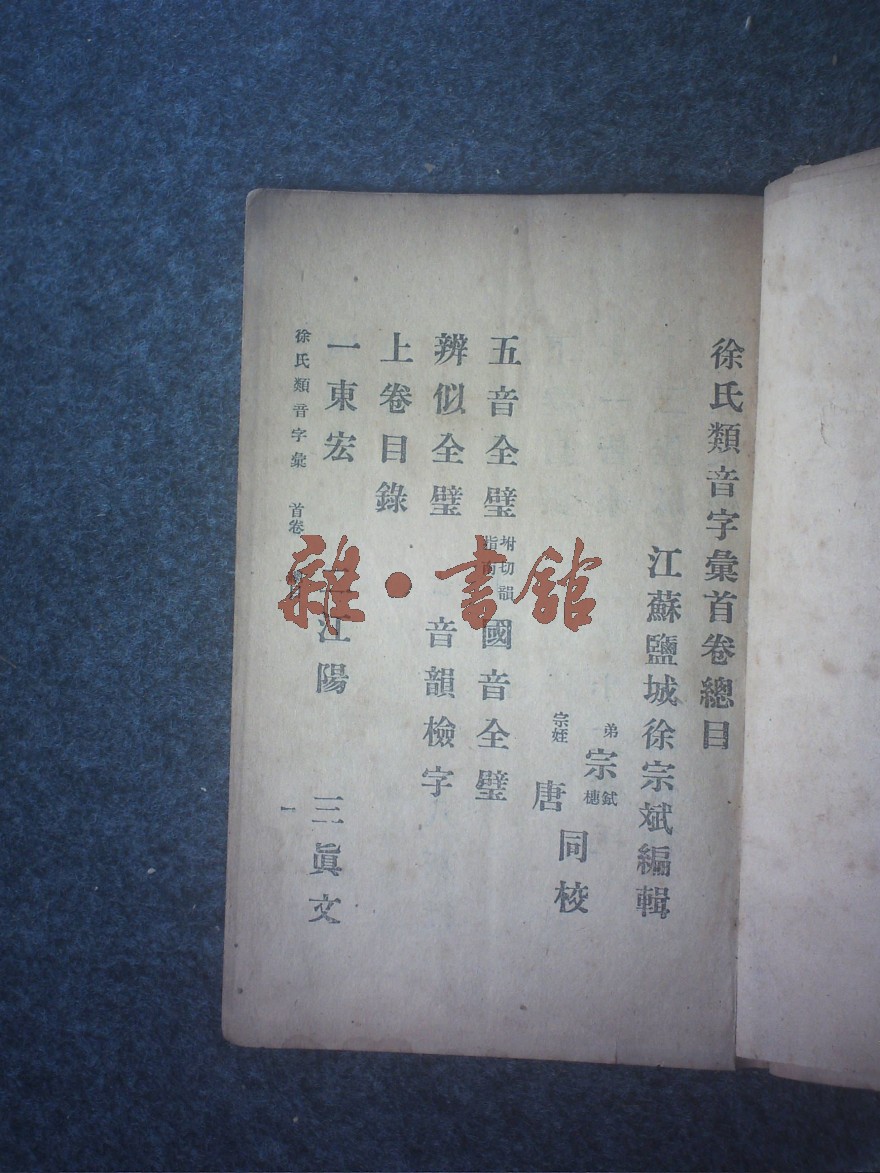 徐氏類音字彙首卷總目
江蘇鹽城徐宗斌編輯
弟宗鉽橞
宗姪唐
同校
五音全璧 坿切韻指南 國音全璧
辨似全璧 音韻檢字
上卷目錄
一東宏 二江陽 三眞文
徐氏類音字彙 首卷 目 一
雜·書舘